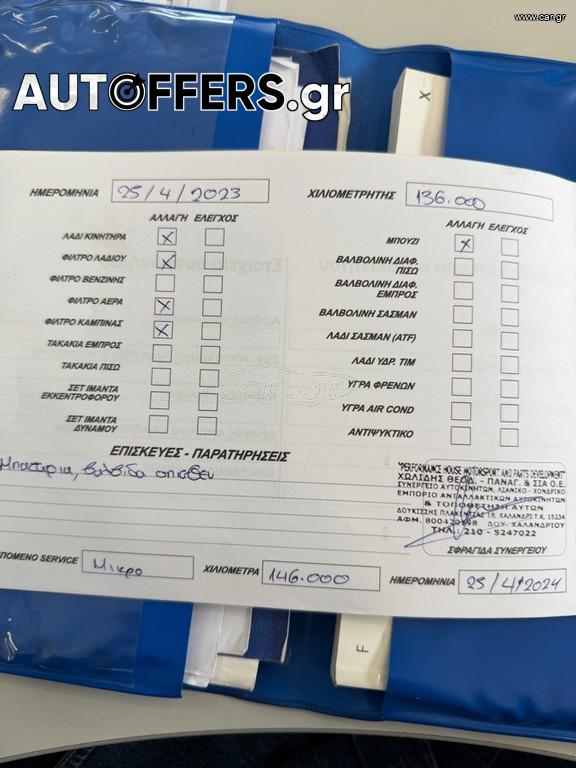 www.car.gr
AUTOFFERS.gr
X
ΗΜΕΡΟΜΗΝΙΑ 25/4/2023 ΧΙΛΙΟΜΕΤΡΗΤΗΣ 136.000
ΑΛΛΑΓΗ ΕΛΕΓΧΟΣ ΑΛΛΑΓΗ ΕΛΕΓΧΟΣ
ΛΑΔΙ ΚΙΝΗΤΗΡΑ X ΜΠΟΥΖΙ X
ΦΙΛΤΡΟ ΛΑΔΙΟΥ X ΒΑΛΒΟΛΙΝΗ ΔΙΑΦ. ΠΙΣΩ
ΦΙΛΤΡΟ ΒΕΝΖΙΝΗΣ ΒΑΛΒΟΛΙΝΗ ΔΙΑΦ. ΕΜΠΡΟΣ
ΦΙΛΤΡΟ ΑΕΡΑ X ΒΑΛΒΟΛΙΝΗ ΣΑΣΜΑΝ
ΦΙΛΤΡΟ ΚΑΜΠΙΝΑΣ X ΛΑΔΙ ΣΑΣΜΑΝ (ATF)
ΤΑΚΑΚΙΑ ΕΜΠΡΟΣ ΛΑΔΙ ΥΔΡ. ΤΙΜ
ΤΑΚΑΚΙΑ ΠΙΣΩ ΥΓΡΑ ΦΡΕΝΩΝ
ΣΕΤ ΙΜΑΝΤΑ ΕΚΚΕΝΤΡΟΦΟΡΟΥ ΥΓΡΑ AIR COND
ΣΕΤ ΙΜΑΝΤΑ ΔΥΝΑΜΟΥ ΑΝΤΙΨΥΚΤΙΚΟ
ΕΠΙΣΚΕΥΕΣ - ΠΑΡΑΤΗΡΗΣΕΙΣ
Μπαταρια, βαλβίδα οπισθεν
"PERFORMANCE HOUSE MOTORSPORT AND PARTS DEVELOPMENT"
ΧΩΛΙΔΗΣ ΘΕΟΔ. - ΠΑΝΑΓ. & ΣΙΑ Ο.Ε.
ΣΥΝΕΡΓΕΙΟ ΑΥΤΟΚΙΝΗΤΩΝ, ΛΙΑΝΙΚΟ - ΧΟΝΔΡΙΚΟ
ΕΜΠΟΡΙΟ ΑΝΤΑΛΛΑΚΤΙΚΩΝ ΑΥΤΟΚΙΝΗΤΩΝ
& ΤΟΠΟΘΕΤΗΣΗ ΑΥΤΩΝ
ΔΟΥΚΙΣΣΗΣ ΠΛΑΚΕΝΤΙΑΣ 19, ΧΑΛΑΝΔΡΙ Τ.Κ. 15234
ΑΦΜ. ΔΟΥ. ΧΑΛΑΝΔΡΙΟΥ
ΤΗΛ.: 210 - 5247022
ΣΦΡΑΓΙΔΑ ΣΥΝΕΡΓΕΙΟΥ
ΠΟΜΕΝΟ SERVICE Μικρο ΧΙΛΙΟΜΕΤΡΑ 146.000 ΗΜΕΡΟΜΗΝΙΑ 25/4/2024
F